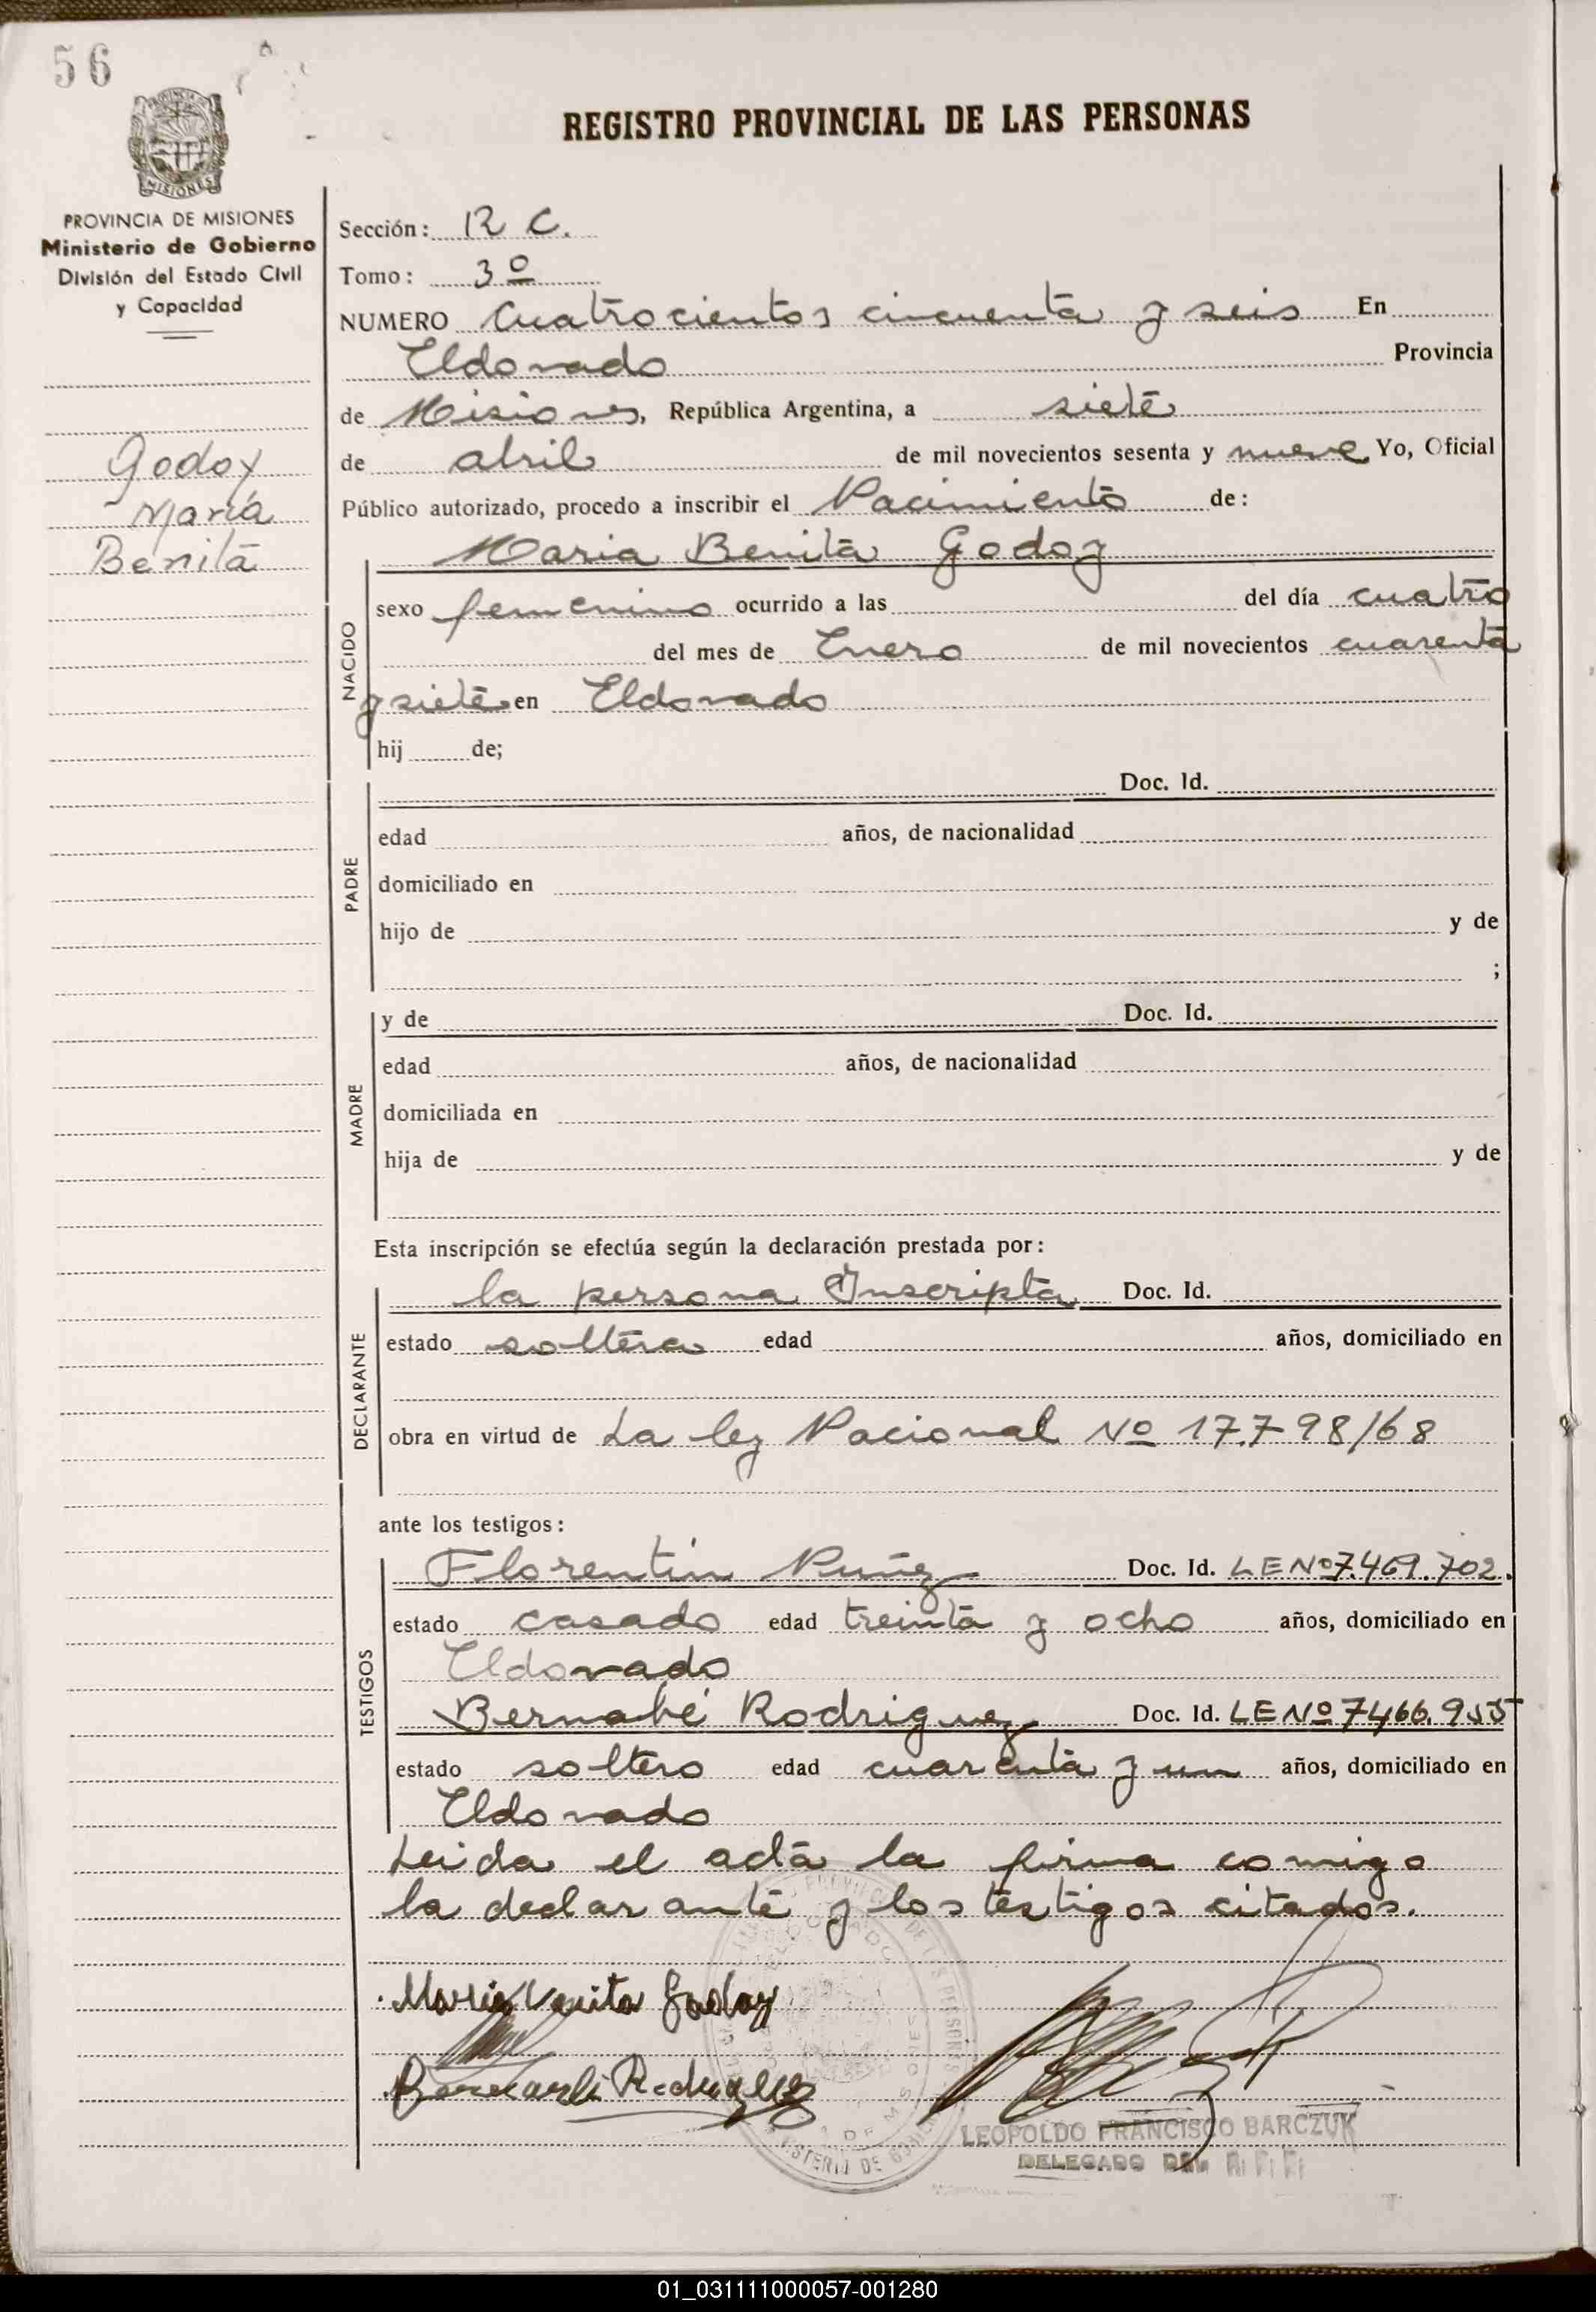 56
REGISTRO PROVINCIAL DE LAS PERSONAS
MISIONES
PROVINCIA DE MISIONES
Ministerio de Gobierno
División del Estado Civil
y Capacidad
Godoy
María
Benita
Sección: R C.
Tomo: 3º
NUMERO Cuatrocientos cincuenta y seis En
Eldorado Provincia
de Misiones, República Argentina, a siete
de abril de mil novecientos sesenta y nueve Yo, Oficial
Público autorizado, procedo a inscribir el Nacimiento de:
Maria Benita Godoy
NACIDO
sexo femenino ocurrido a las del día cuatro
del mes de Enero de mil novecientos cuarenta
y siete en Eldorado
hij de;
PADRE
Doc. Id.
edad años, de nacionalidad
domiciliado en
hijo de y de
;
MADRE
y de Doc. Id.
edad años, de nacionalidad
domiciliada en
hija de y de
Esta inscripción se efectúa según la declaración prestada por:
DECLARANTE
la persona Inscripta Doc. Id.
estado soltera edad años, domiciliado en
obra en virtud de La ley Nacional Nº 17.798/68
ante los testigos:
TESTIGOS
Florentín Nuñez Doc. Id. LE Nº 7.469.702.
estado casado edad treinta y ocho años, domiciliado en
Eldorado
Bernabé Rodriguez Doc. Id. LE Nº 7466.955
estado soltero edad cuarenta y un años, domiciliado en
Eldorado
Leida el acta la firma comigo
la declarante y los testigos citados.
Maria Venita Godoy
LEOPOLDO FRANCISCO BARCZUK
DELEGADO DEL
01_031111000057-001280